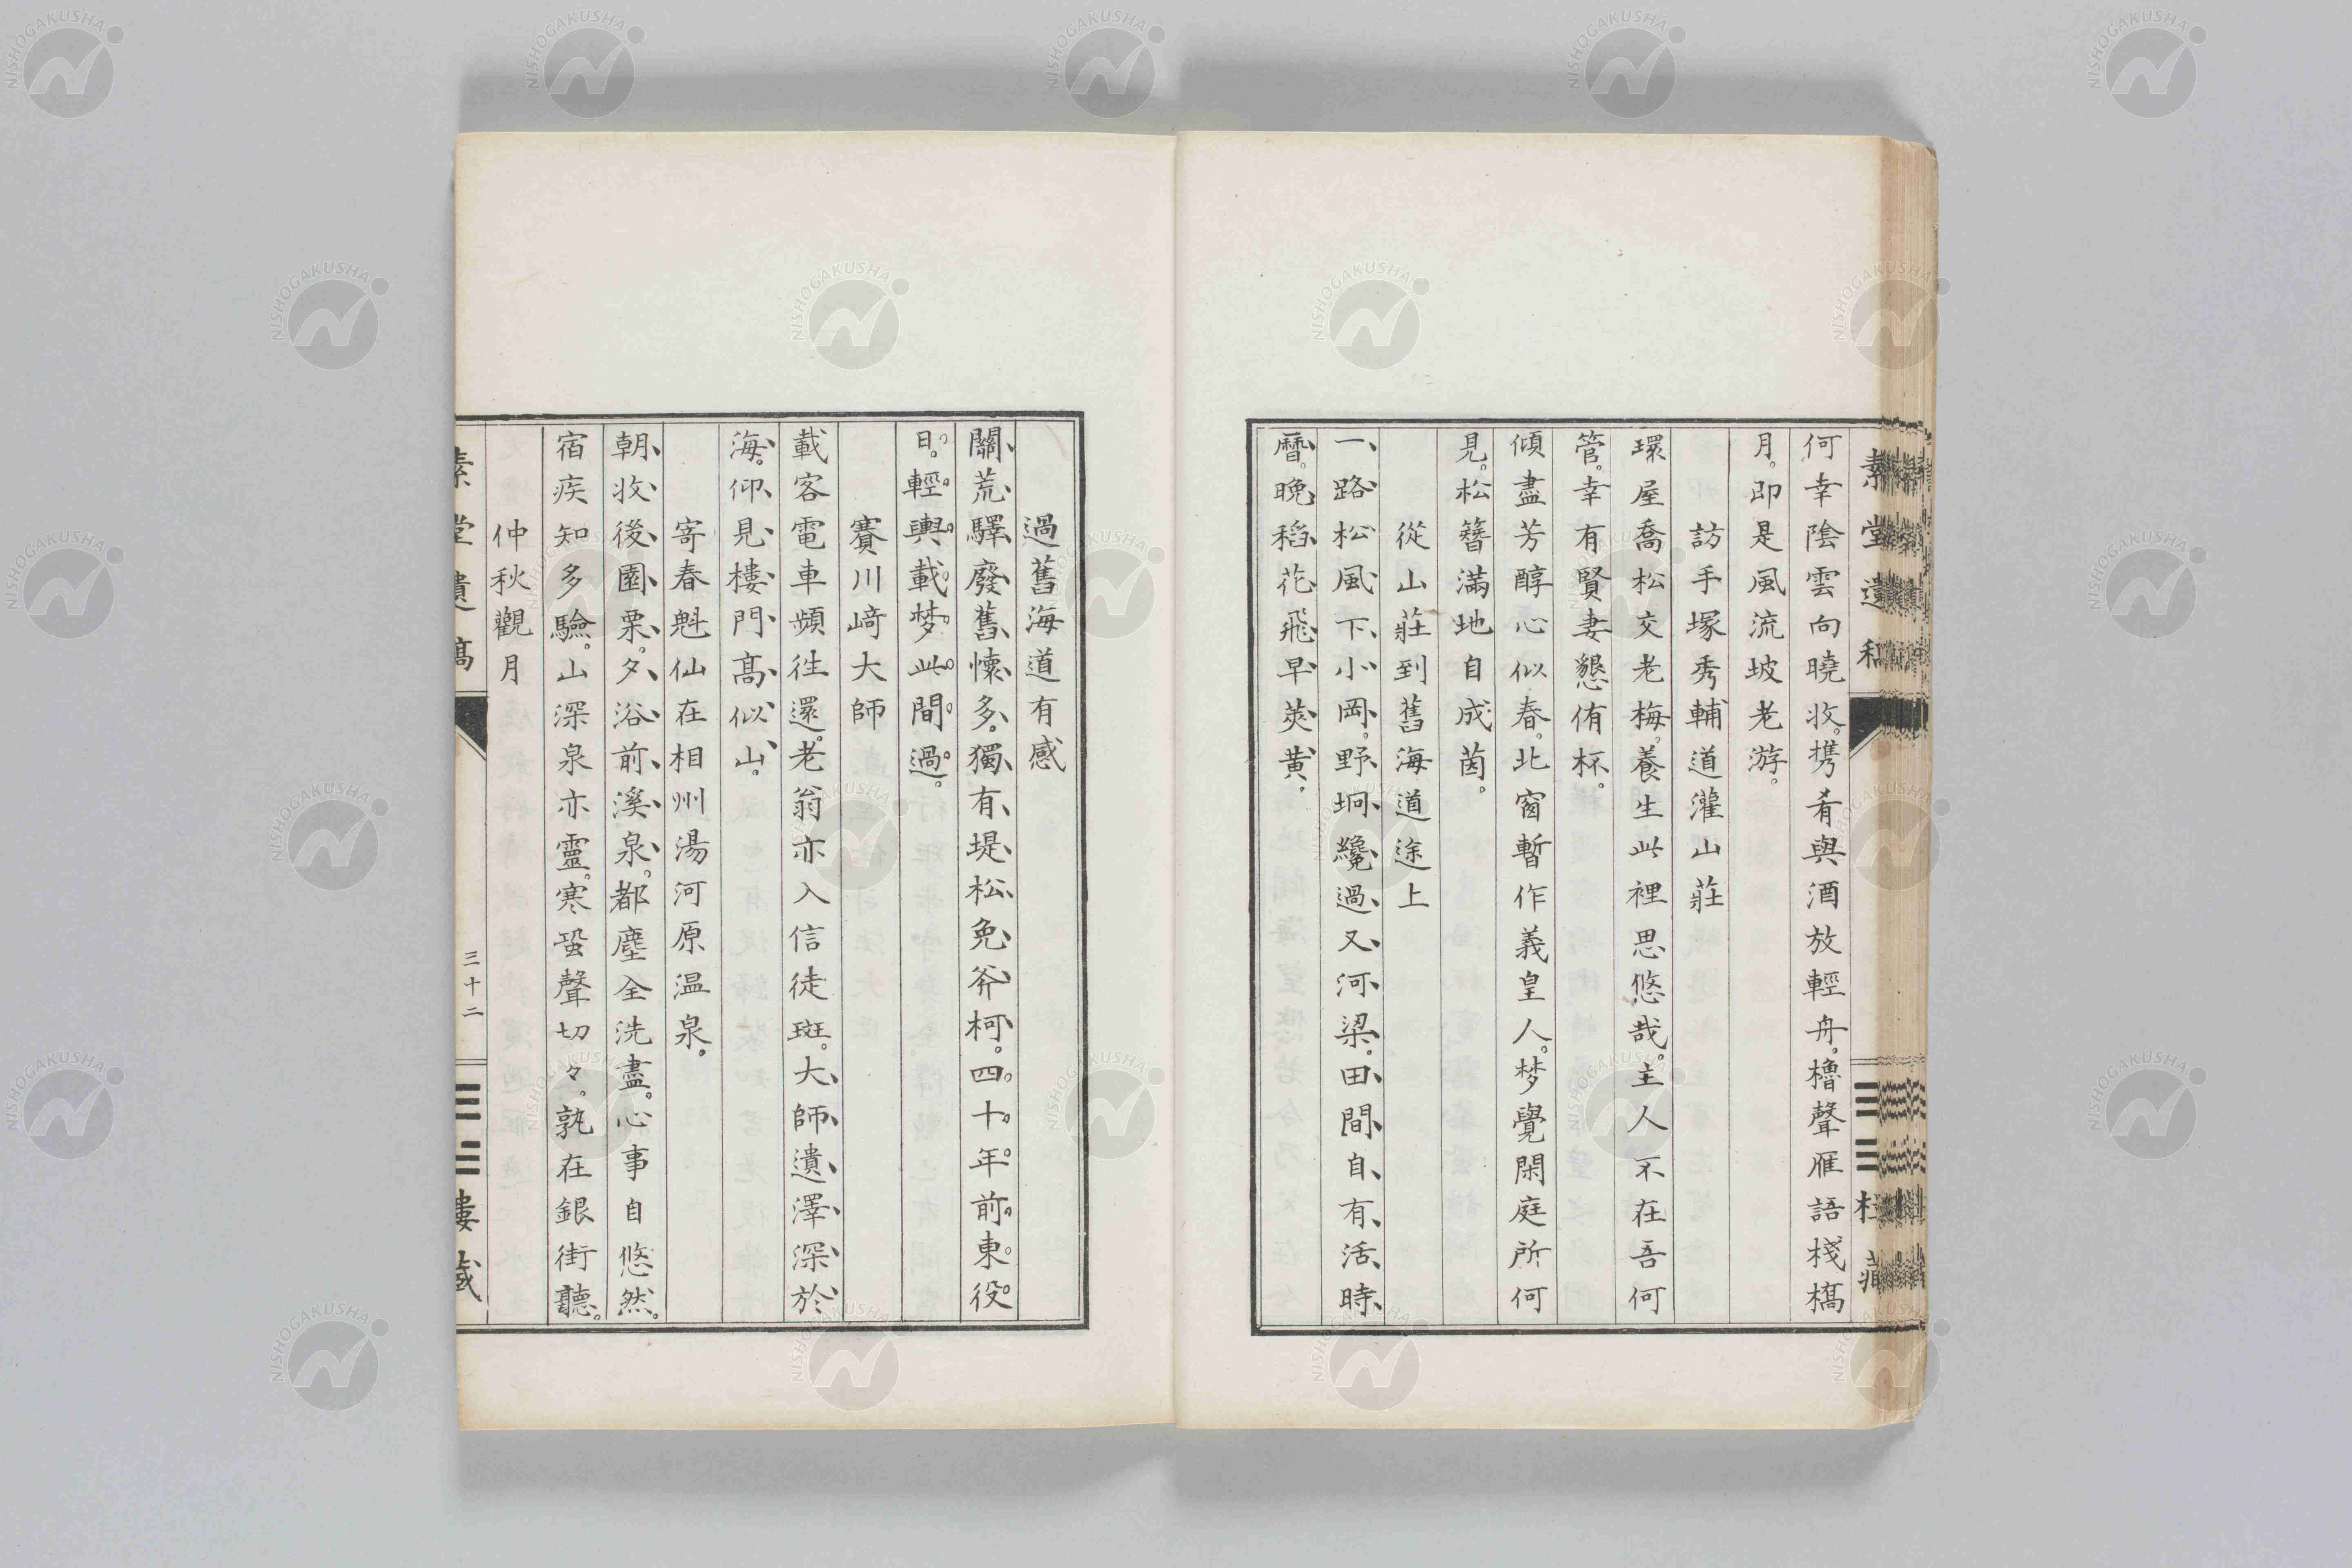 何幸陰雲向曉收。携肴與酒放輕舟。櫓聲雁語棧橋
月。即是風流坡老游。
訪手塚秀輔道灌山莊
環屋喬松交老梅。養生此裡思悠哉。主人不在吾何
管。幸有賢妻懇侑杯。
傾盡芳醇心似春。北窗暫作義皇人。梦覺閑庭所何
見。松簪滿地自成茵。
從山莊到舊海道途上
一路松風下小岡。野坰纔過又河梁。田間自有活時
曆。晚稻花飛早莢黄。
過舊海道有感
關荒驛廢舊懷多。獨有堤松免斧柯。四十年前東役
日。輕輿載梦此間過。
賽川﨑大師
載客電車頻往還。老翁亦入信徒斑。大師遺澤深於
海。仰見樓門高似山。
寄春魁仙在相州湯河原温泉。
朝收後園栗。夕浴前溪泉。都塵全洗盡。心事自悠然。
宿疾知多驗。山深泉亦靈。寒蛩聲切々。孰在銀街聽。
仲秋觀月
素堂遺稿
三十二
樓藏
NISHOGAKUSHA